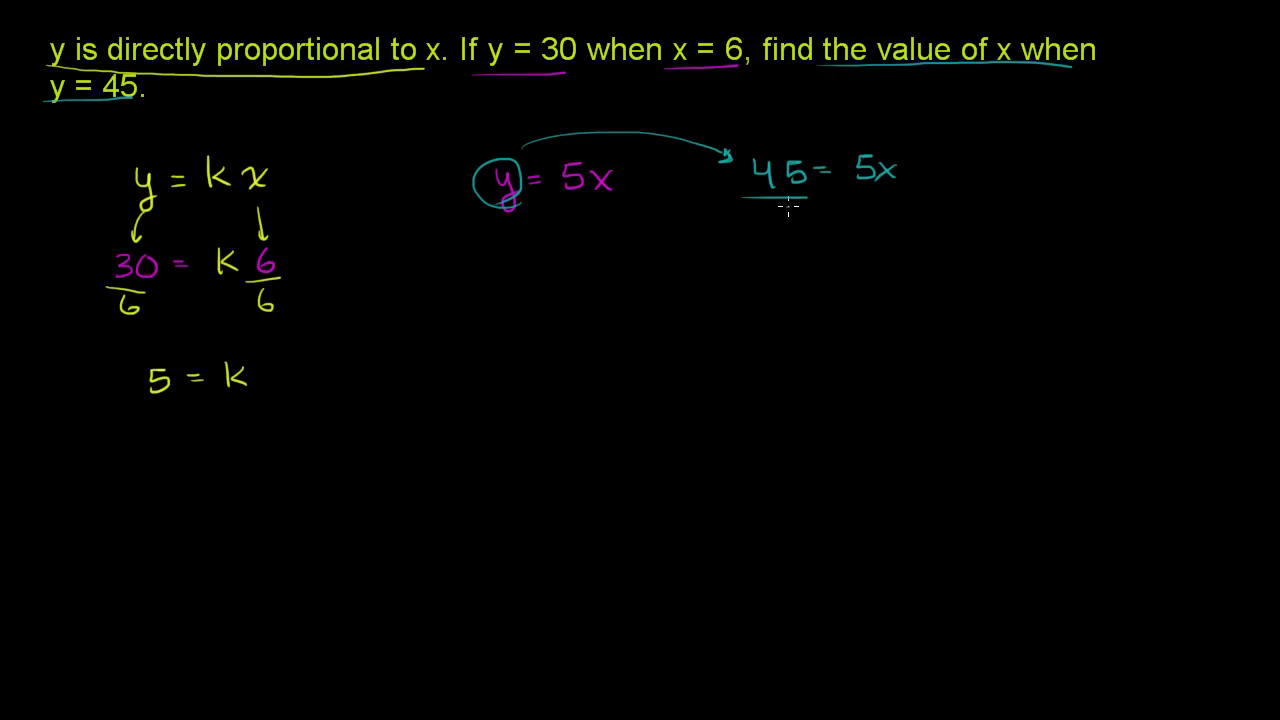 y is directly proportional to x. If y = 30 when x = 6, find the value of x when
y = 45.
y = k x
30 = k 6
6 6
5 = k
y = 5x
45 = 5x